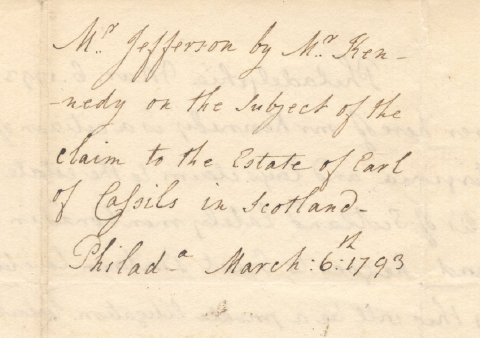 Mr Jefferson by Mr Ken-
-nedy on the Subject of the
claim to the Estate of Earl
of Caſsils in Scotland-
Philada March: 6th: 1793